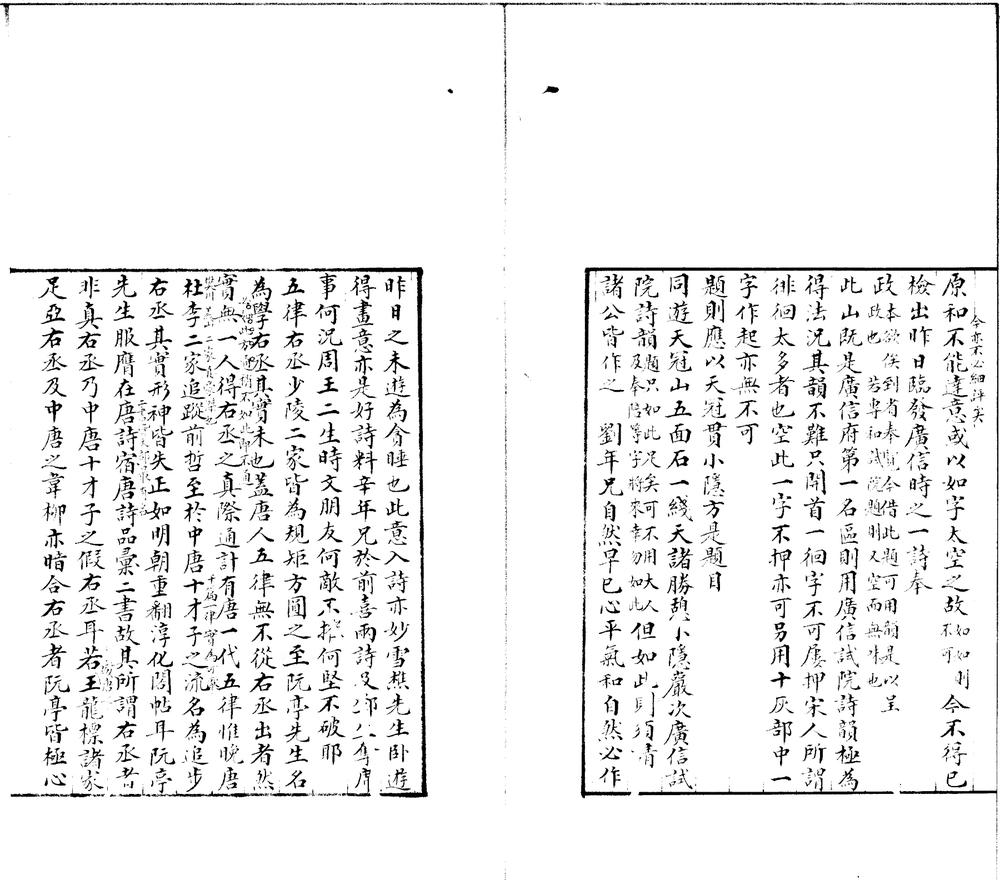 今亦不必細詳矣
原和不能達意或以如字太空之故如如則不可今不得已
檢出昨日臨發廣信時之一詩奉
政本欲俟到省奉覽今借此題可用韻是以呈政也若專和試院題則又空而無味也
此山既是廣信府第一名區則用廣信試院詩韻極為
得法況其韻不難只開首一徊字不可屢押宋人所謂
徘徊太多者也空此一字不押亦可另用十灰部中一
字作起亦無不可
題則應以天冠貫小隱方是題目
同遊天冠山五面石一綫天諸勝憩小隱巖次廣信試
院詩韻題只如此足矣可不用大人及奉陪等字將來幸勿如此但如此則須青
諸公皆作之 劉年兄自然早已心平氣和自然必作
昨日之未遊為貪睡也此意入詩亦妙雪樵先生臥遊
得畫意亦是好詩料辛年兄於前喜雨詩及
事何況周王二生時文朋友何敵不摧何堅不破耶
五律右丞少陵二家皆為規矩方圓之至阮亭先生名
為學右丞其實未也蓋唐人五律無不從右丞出者然
實無一人得右丞之真際通計有唐一代五律惟晚唐
杜李二家追蹤前哲至於中唐十才子之流名為追步
右丞其實形神皆失正如明朝重翻淳化閣帖耳阮亭
先生服膺在唐詩宿唐詩品彙二書故其所謂右丞者
非真右丞乃中唐十才子之假右丞耳若王龍標諸家
足亞右丞及中唐之韋柳亦暗合右丞者阮亭皆極心